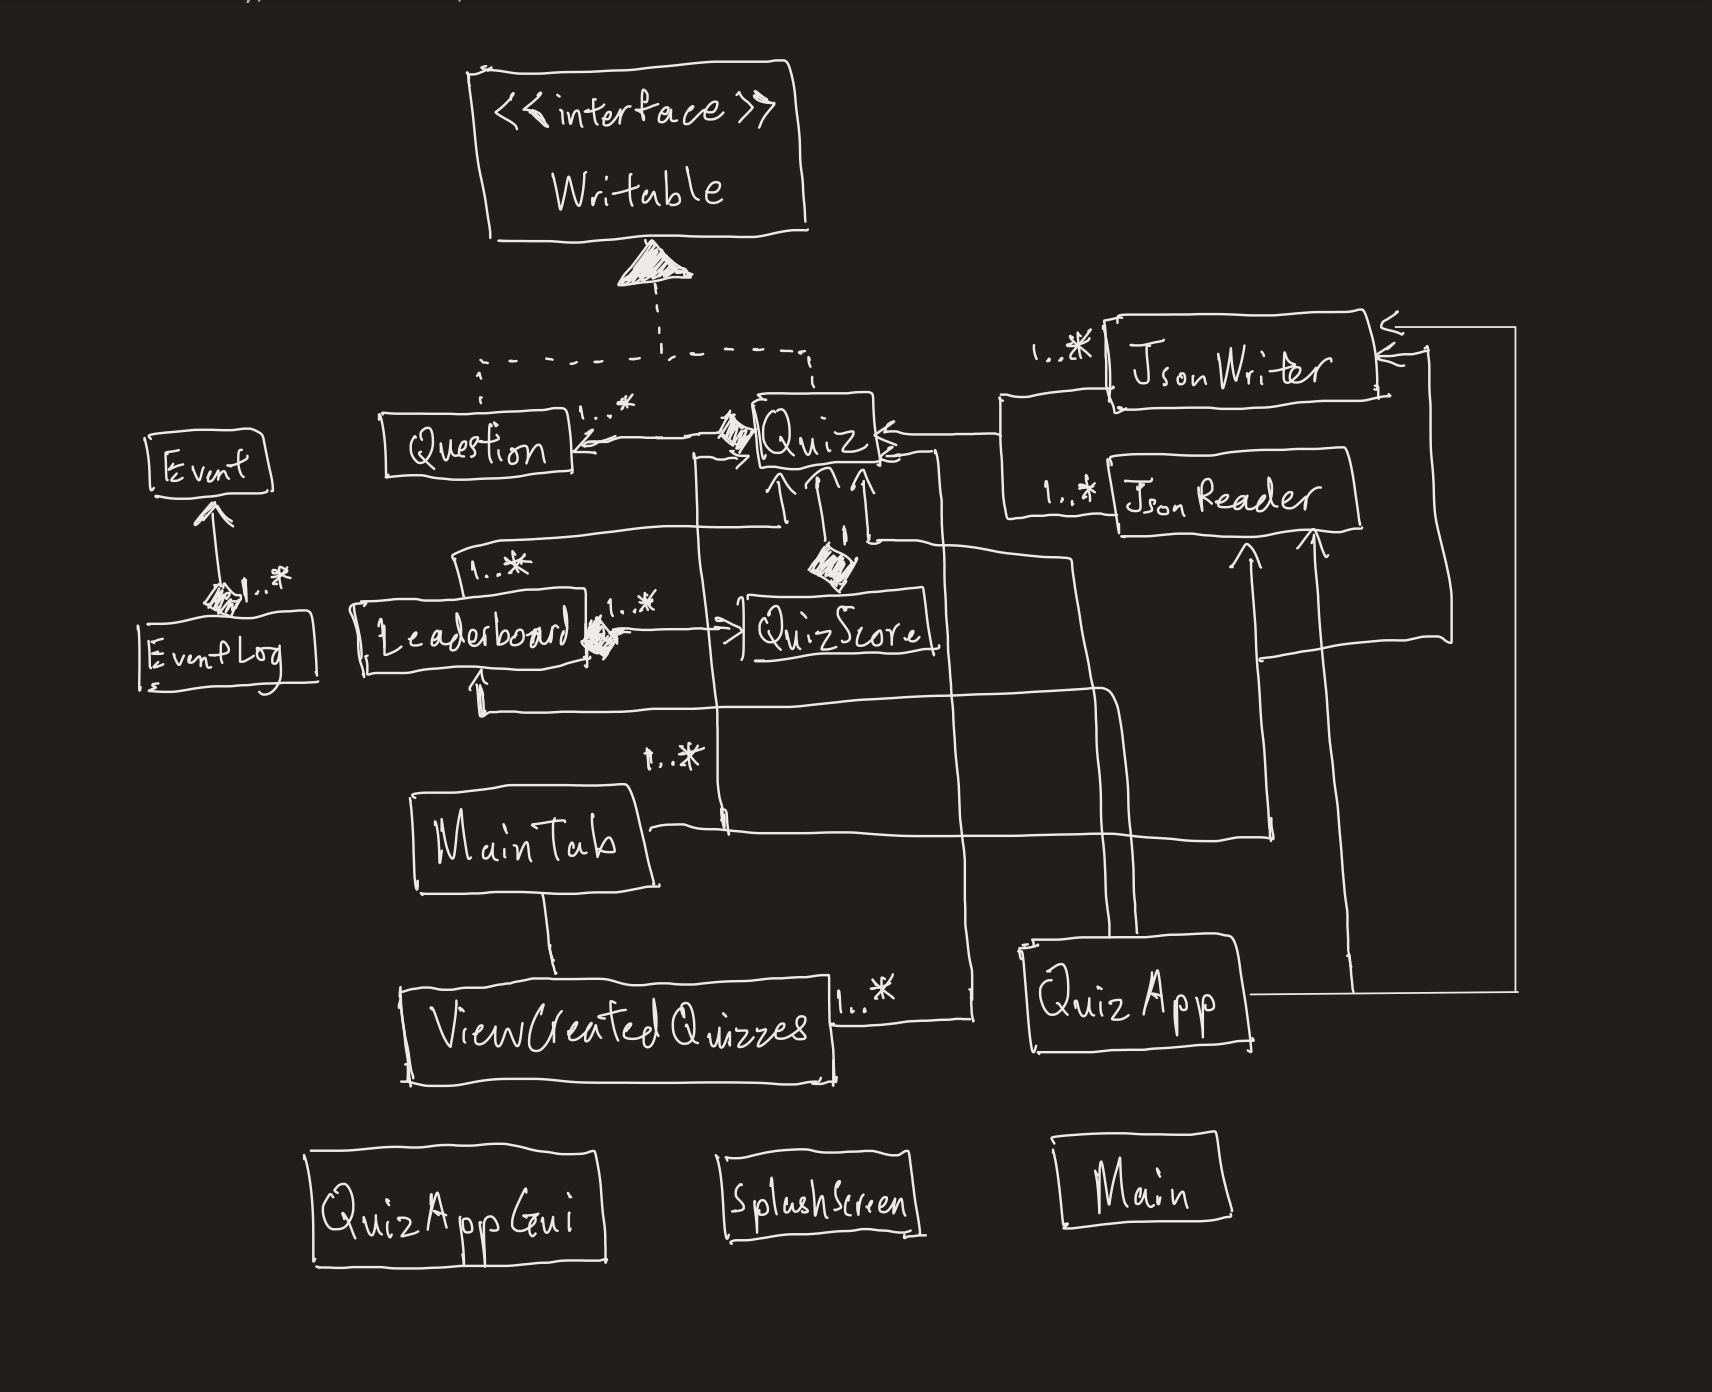 <<interface>>
Writable
1..*
JsonWriter
1..*
Question
Quiz
Event
1..*
JsonReader
1
1..*
1..*
1..*
EventLog
Leaderboard
QuizScore
1..*
MainTab
1..*
ViewCreatedQuizzes
QuizApp
QuizAppGui
SplashScreen
Main